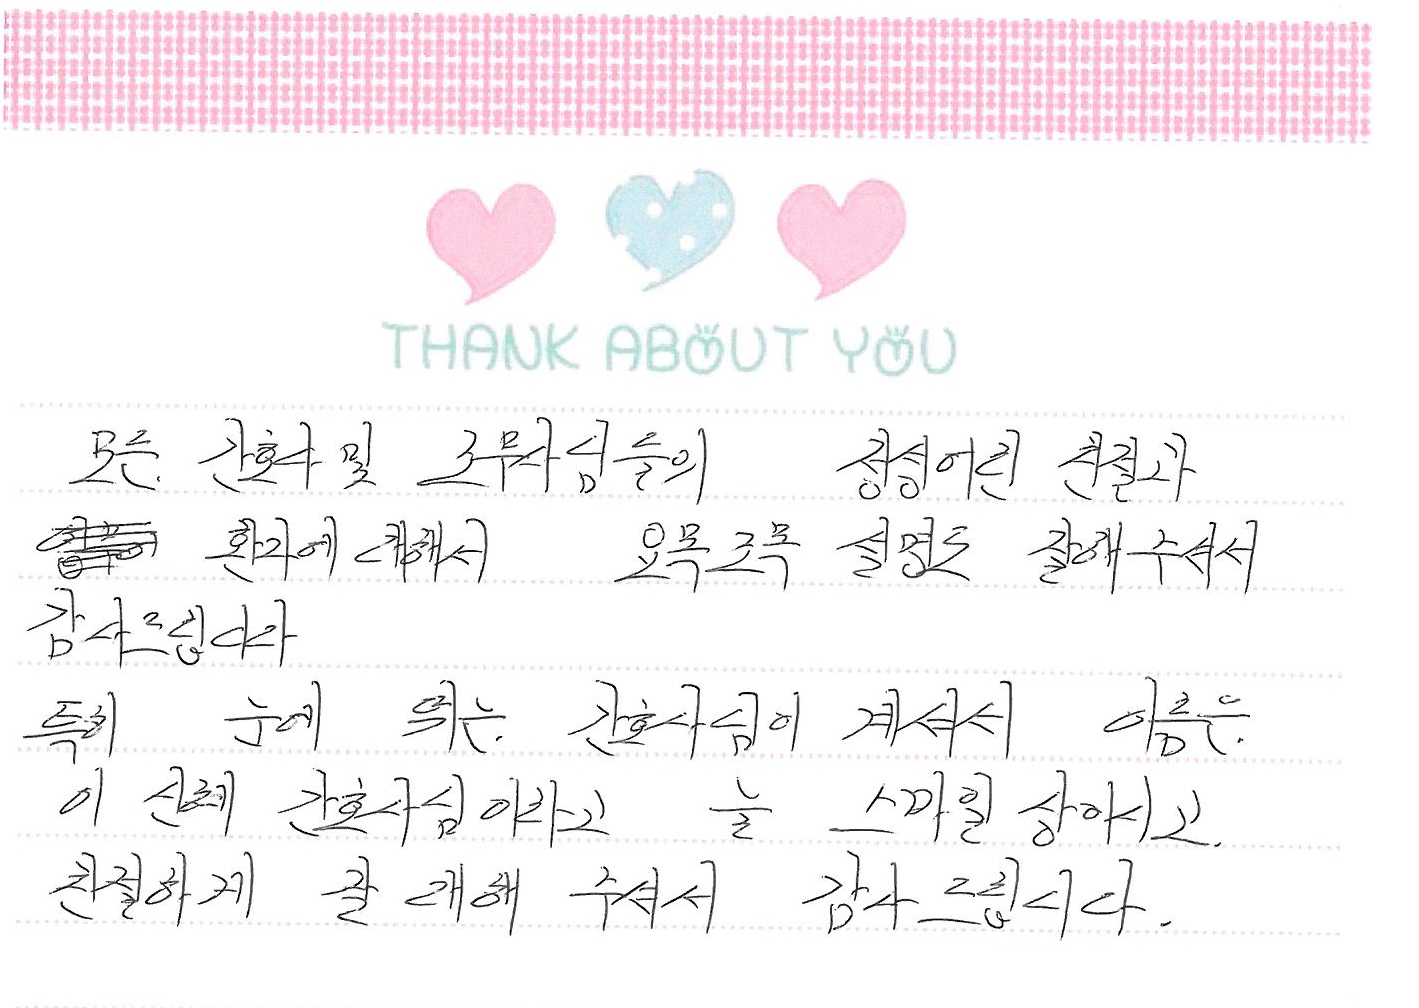 THANK ABOUT YOU
모든 간호사 및 조무사님들의 정성어린 친절과
환자에 대해서 요목조목 설명도 잘해 주셔서
감사드립니다
특히 눈에 띄는 간호사님이 계셔서 이름은
이 간호사님이라고 늘 스마일 상이시고.
친절하게 잘 대해 주셔서 감사드립니다.